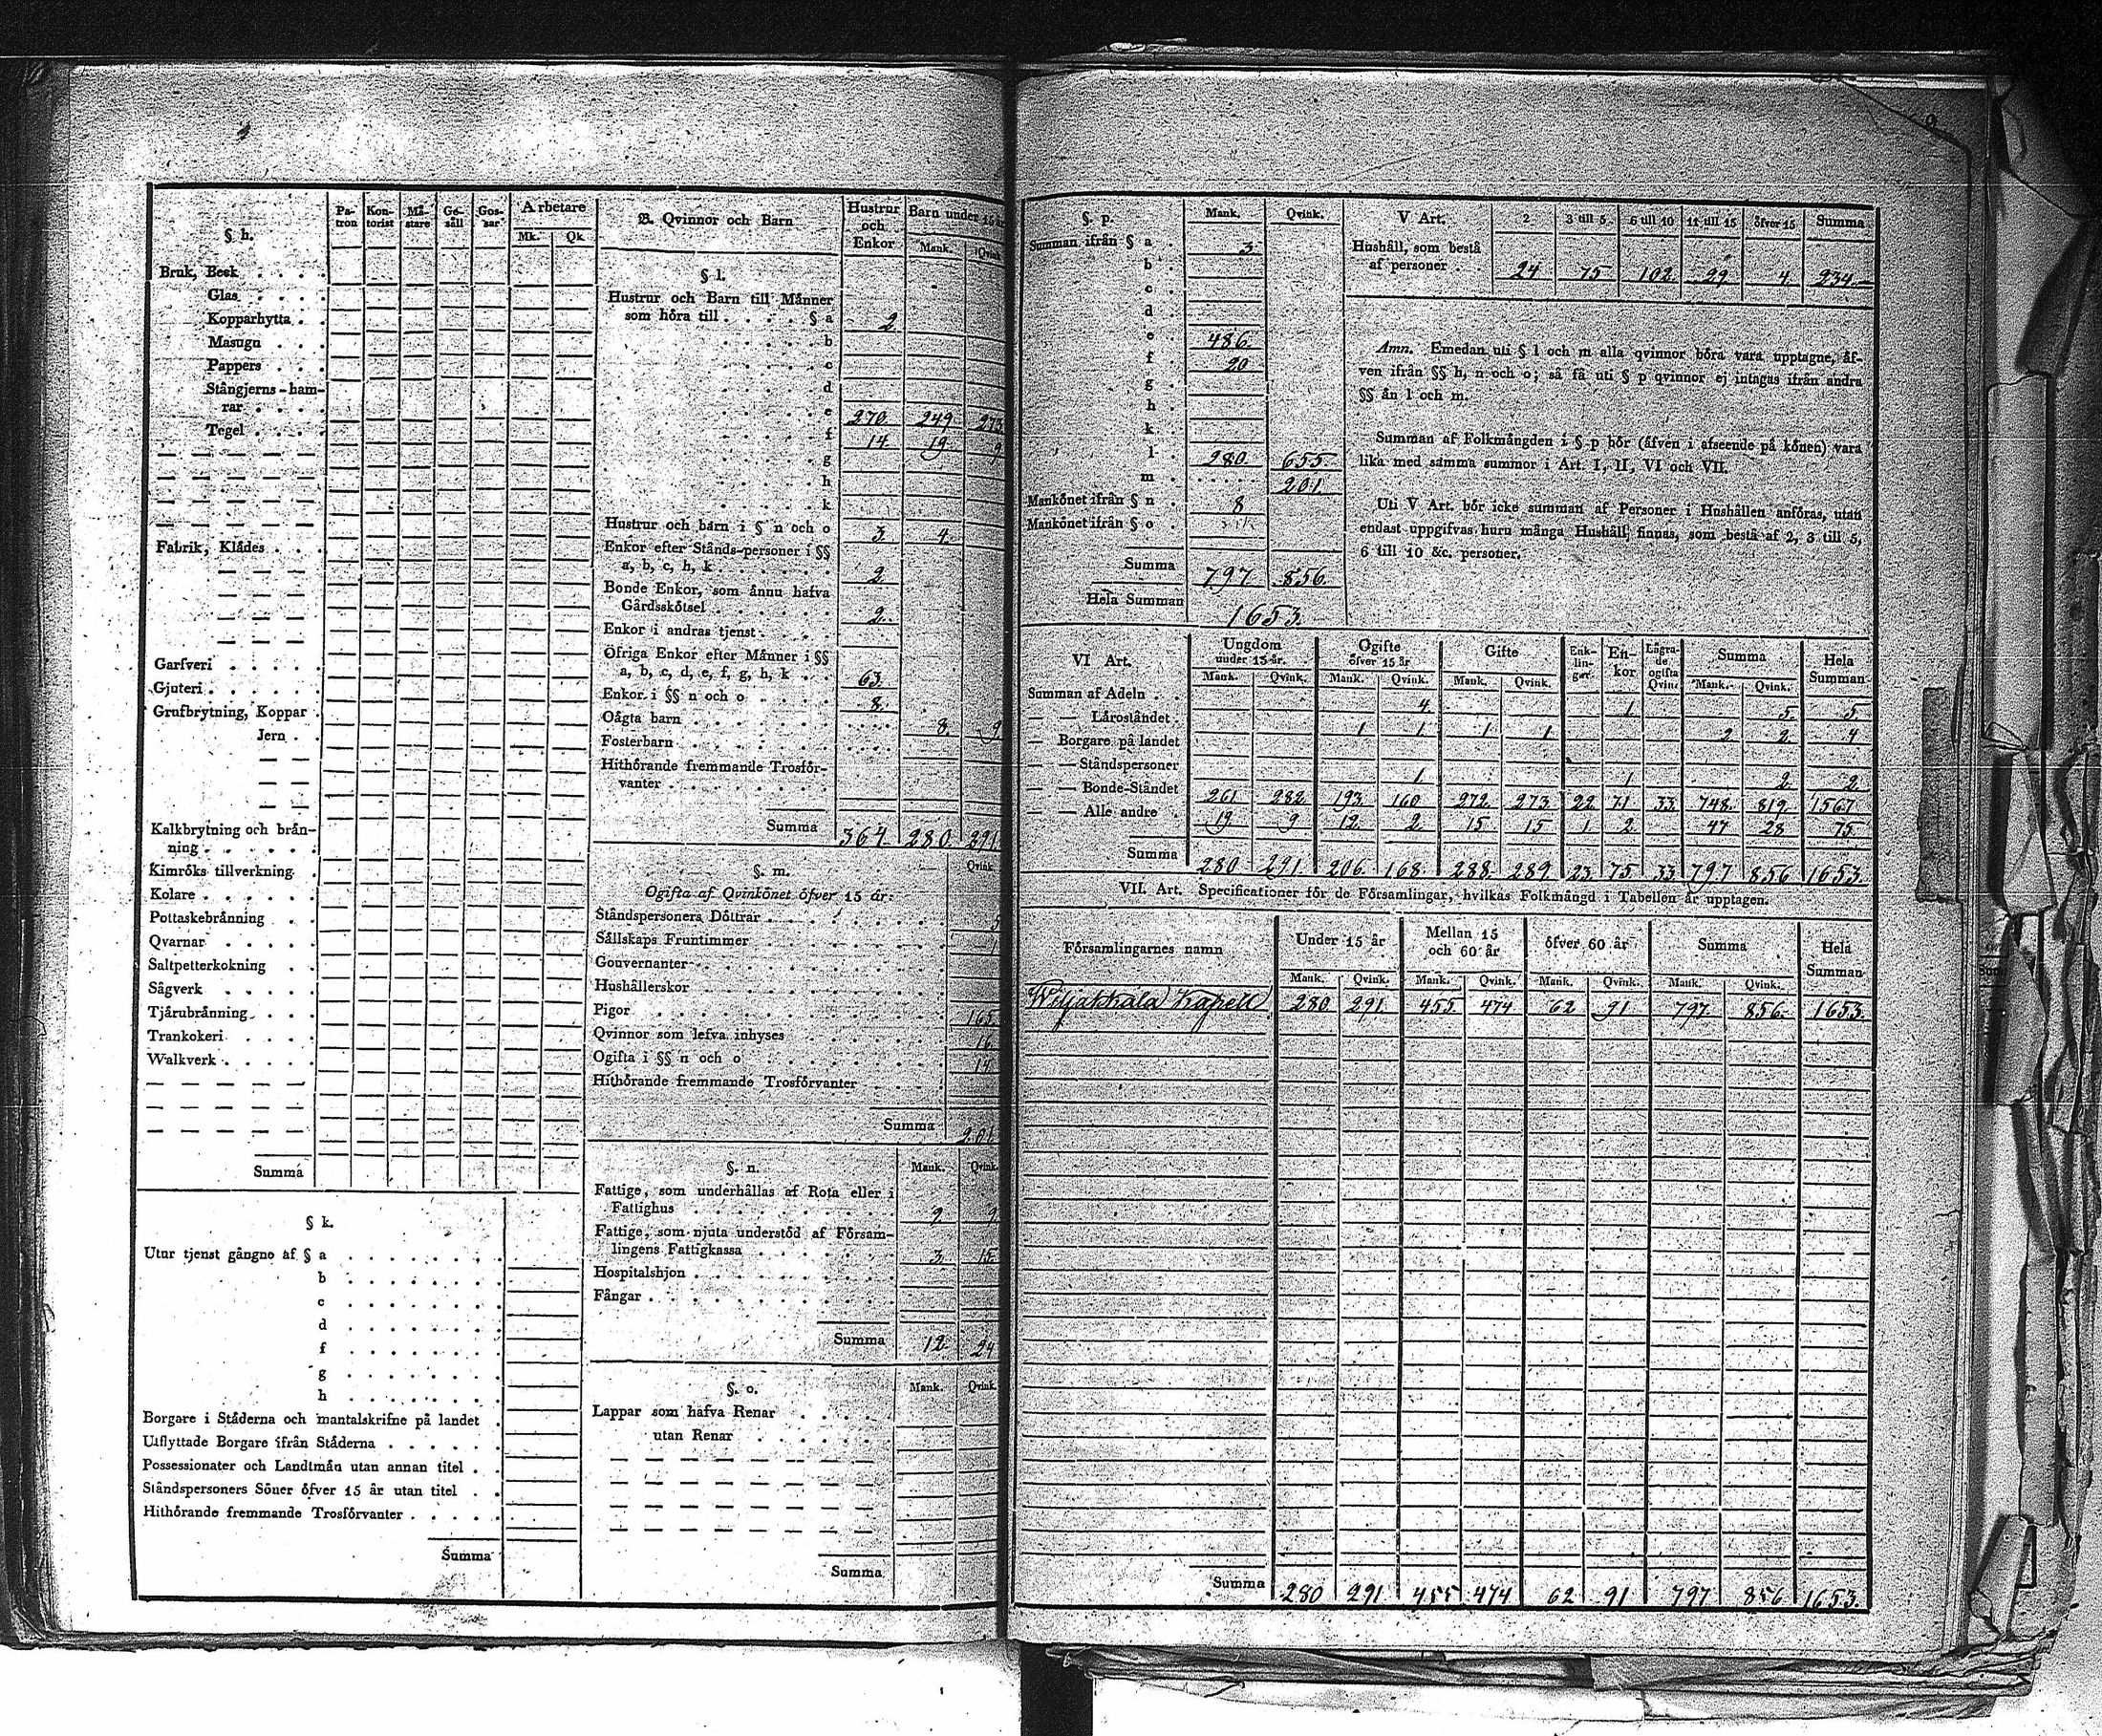 § h.
Pa-tron Kon-torist Må-stare Ge-säll Gos-sar Arbetare
Mk. Qk.
Bruk, Beck
Glas
Kopparhytta
Masugn
Pappers
Stångjerns-ham-
rar
Tegel
Fabrik, Klädes
Garfveri
Gjuteri
Grufbrytning, Koppar
Jern
Kalkbrytning och brån-
ning
Kimröks tillverkning
Kolare
Pottaskebrånning
Qvarnar
Saltpetterkokning
Sågverk
Tjärubrånning
Trankokeri
Walkverk
Summa
§ k.
Utur tjenst gångne af § a
b
c
d
f
g
h
Borgare i Städerna och mantalskrifne på landet
Utflyttade Borgare ifrån Städerna
Possessionater och Landtmån utan annan titel
Ståndspersoners Söner öfver 15 år utan titel
Hithörande fremmande Trosförvanter
Summa
B. Qvinnor och Barn Hustrur och Enkor Barn under 15 år
Mank. Qvink.
§ l.
Hustrur och Barn till Männer
som höra till § a 2
b
c
d
e 270 249 273
f 14 19 9
g
h
k
Hustrur och barn i § n och o 3 4
Enkor efter Stånds-personer i §§
a, b, c, h, k 2
Bonde Enkor, som ännu hafva
Gårdsskötsel 2
Enkor i andras tjenst
Öfriga Enkor efter Männer i §§
a, b, c, d, e, f, g, h, k 63
Enkor i §§ n och o 8
Oägta barn 8 9
Fosterbarn
Hithörande fremmande Trosför-
vanter
Summa 364 280 291
§. m. Qvink.
Ogifta af Qvinkönet öfver 15 år:
Ståndspersoners Döttrar 5
Sällskaps Fruntimmer 1
Gouvernanter
Hushållerskor
Pigor 165
Qvinnor som lefva inhyses 16
Ogifta i §§ n och o 14
Hithörande fremmande Trosförvanter
Summa 201
§. n. Mank. Qvink.
Fattige, som underhållas af Rota eller i
Fattighus 9 9
Fattige, som njuta understöd af Försam-
lingens Fattigkassa 3 15
Hospitalshjon
Fångar
Summa 12 24
§. o. Mank. Qvink.
Lappar som hafva Renar
utan Renar
Summa
§. p. Mank. Qvink.
Summan ifrån § a 3
b
c
d
e 486
f 20
g
h
k
l 280 655
m 201
Mankönet ifrån § n 8
Mankönet ifrån § o
Summa 797 856
Hela Summan 1653
V Art. 2 3 till 5 6 till 10 11 till 15 öfver 15 Summa
Hushåll, som bestå
af personer 24 75 102 29 4 234
Amn. Emedan uti § l och m alla qvinnor böra vara upptagne, äf-
ven ifrån §§ h, n och o; så få uti § p qvinnor ej intagas ifrån andra
§§ än l och m.
Summan af Folkmängden i § p bör (äfven i afseende på könen) vara
lika med samma summor i Art. I, II, VI och VII.
Uti V Art. bör icke summan af Personer i Hushållen anföras, utan
endast uppgifvas huru många Hushåll finnas, som bestå af 2, 3 till 5,
6 till 10 &c. personer.
VI Art. Ungdom under 15 år. Ogifte öfver 15 år Gifte Enk-lin-gar. En-kor Lågra-de ogifta Qvin. Summa Hela Summan
Mank. Qvink. Mank. Qvink. Mank. Qvink. Mank. Qvink.
Summan af Adeln 4 1 5 5
— — Låroståndet 1 1 1 1 2 2 4
— Borgare på landet
— — Ståndspersoner 1 1 2 2
— — Bonde-Ståndet 261 282 193 160 272 273 22 71 33 748 819 1567
— — Alle andre 19 9 12 2 15 15 1 2 47 28 75
Summa 280 291 206 168 288 289 23 75 33 797 856 1653
VII. Art. Specificationer för de Församlingar, hvilkas Folkmängd i Tabellen är upptagen.
Församlingarnes namn Under 15 år Mellan 15 och 60 år öfver 60 år Summa Hela Summan
Mank. Qvink. Mank. Qvink. Mank. Qvink. Mank. Qvink.
Wiljakkala Kapell 280 291 455 474 62 91 797 856 1653
Summa 280 291 455 474 62 91 797 856 1653